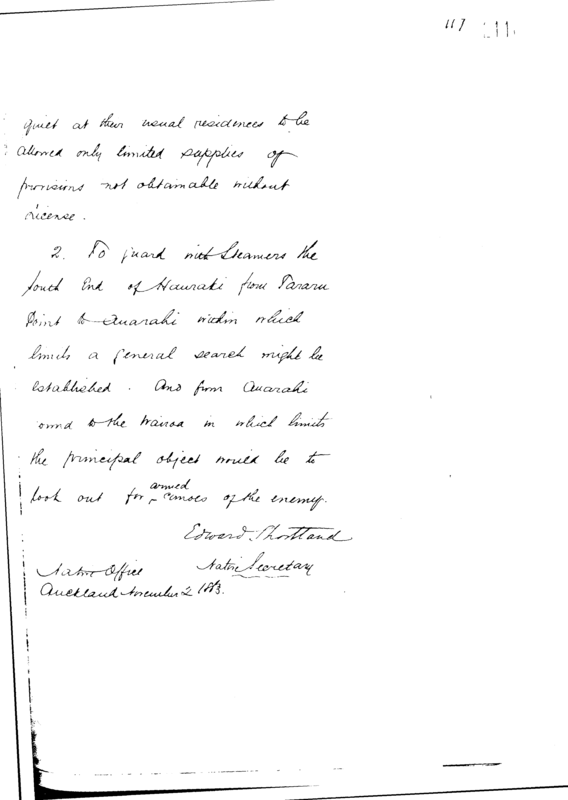 117
quiet at their usual residences to be
allowed only limited supplies of
provisions not obtainable without
License.
2. To guard with Steamers the
South End of Hauraki from Tararu
Point to Auarahi within which
limits a general search might be
established. And from Auarahi
round to the Wairoa in which limits
the principal object would be to
look out for armed canoes of the enemy.
Edward Shortland
Native Secretary
Native Office
Auckland November 2 1863.